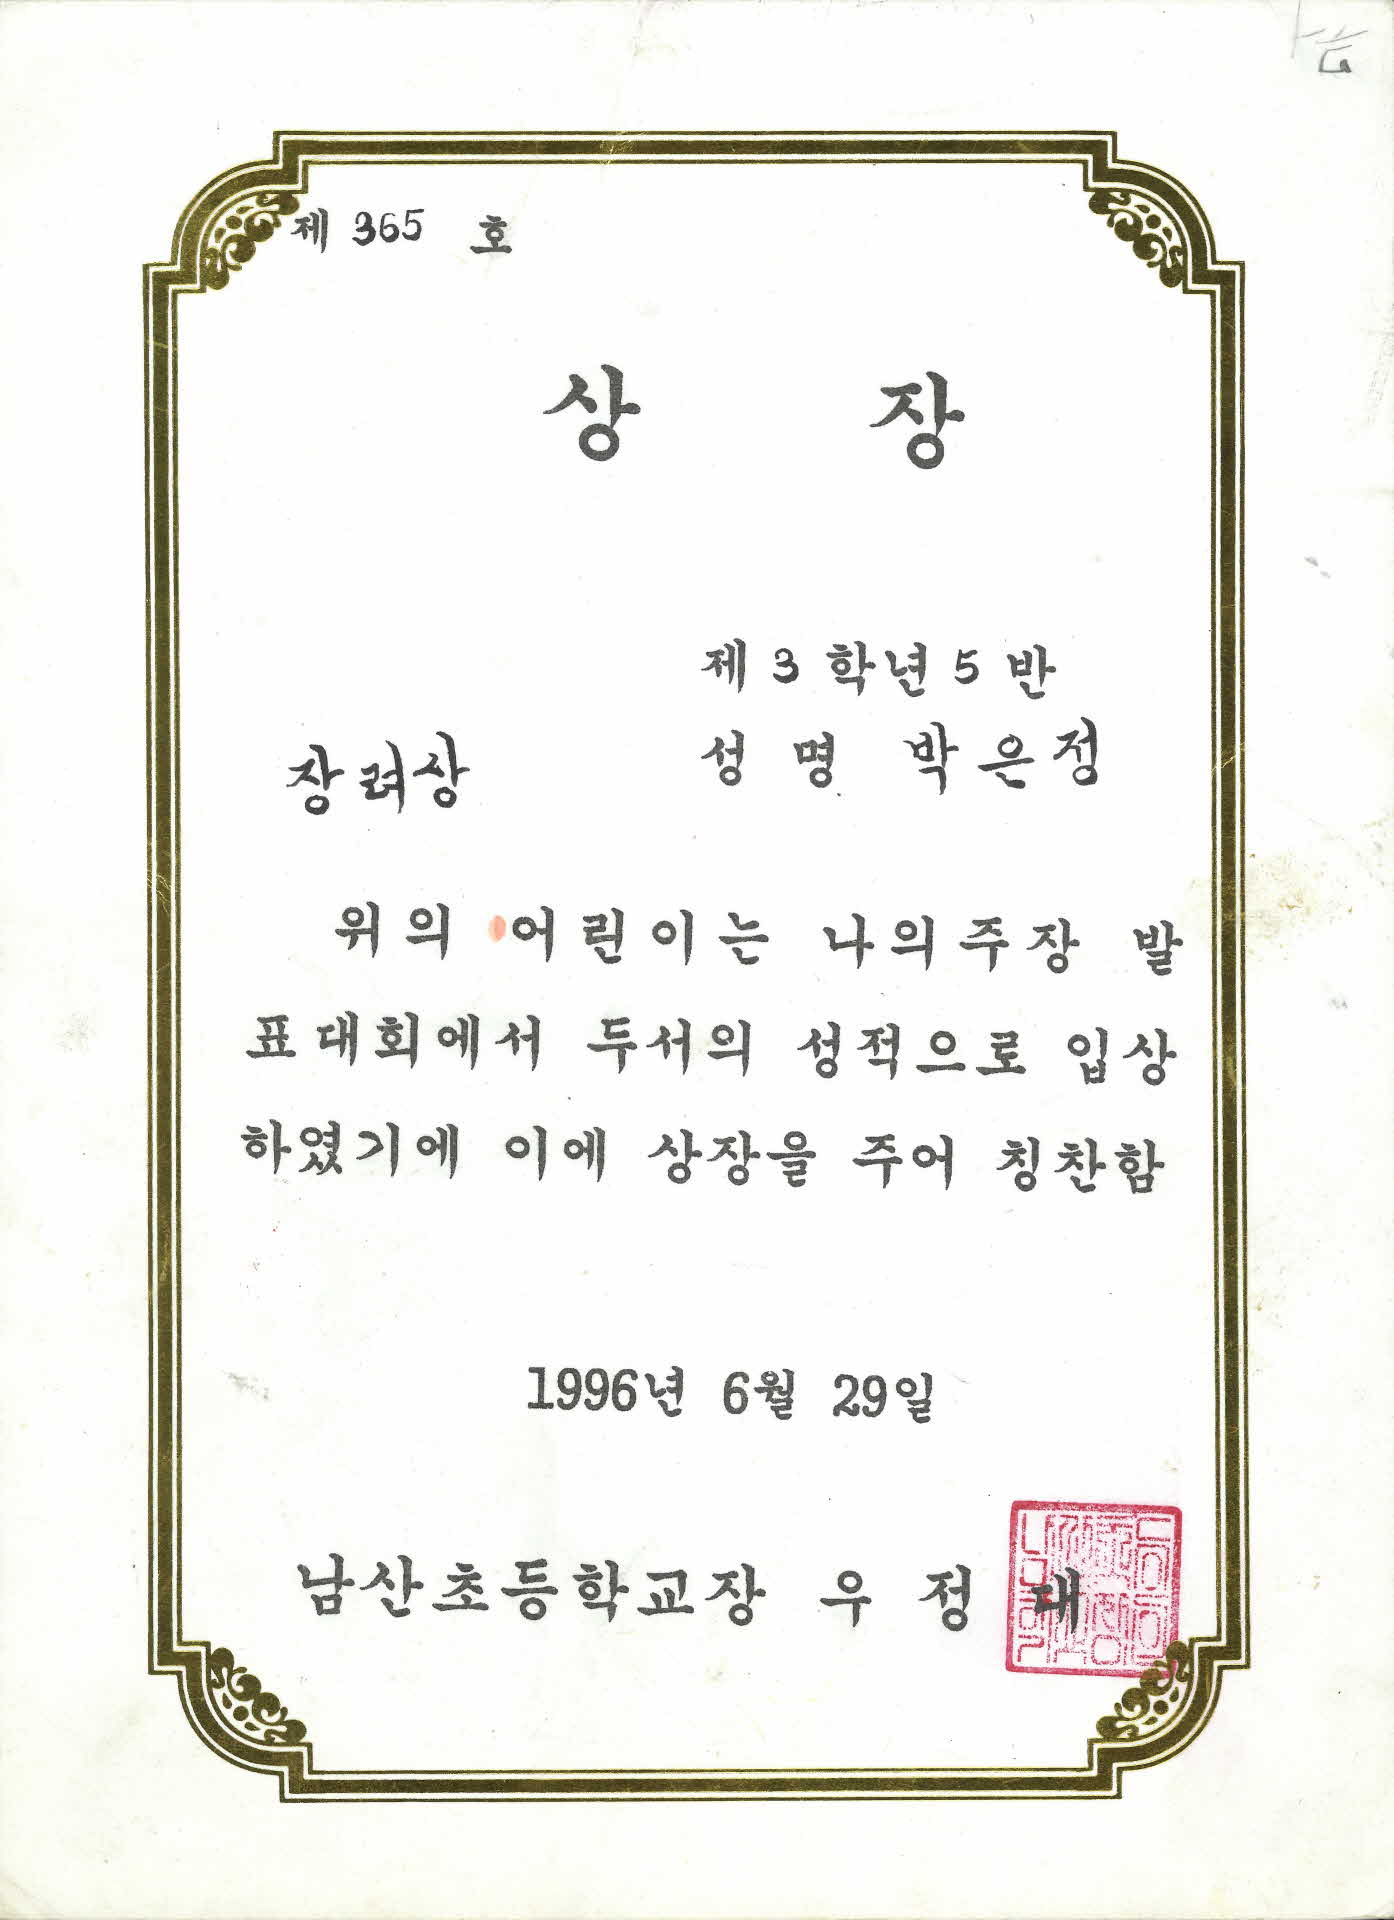 제 365 호
상 장
제 3 학년 5 반
성 명 박은정
장려상
위의 어린이는 나의주장 발
표대회에서 두서의 성적으로 입상
하였기에 이에 상장을 주어 칭찬함
1996년 6월 29일
남산초등학교장 우 정 대